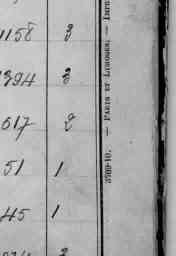 1158 3
394 3
617 2
51 1
45 1
3709-10. — PARIS ET LIMOGES. — IMP